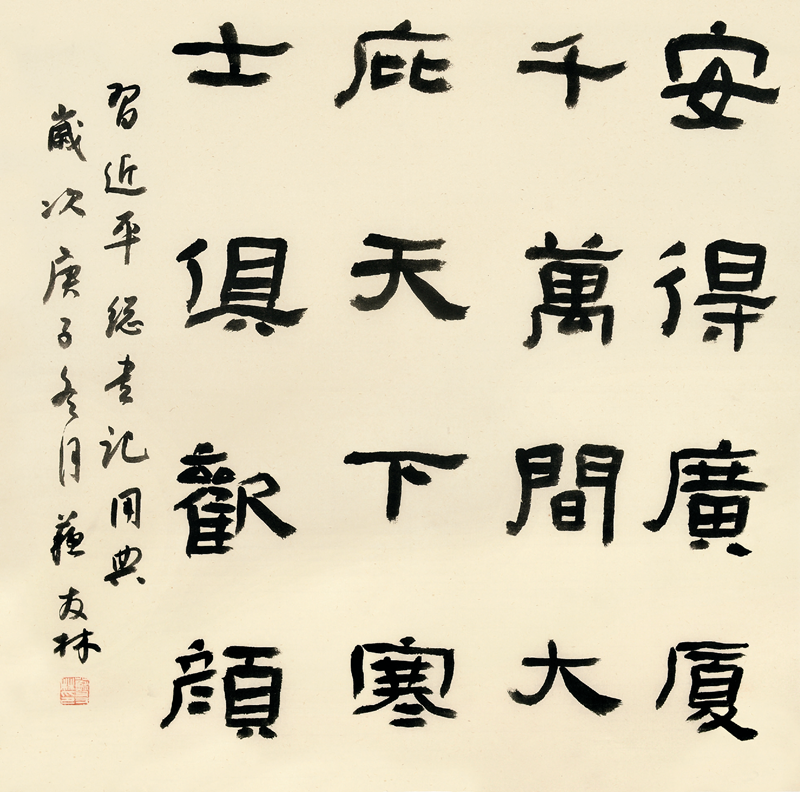 安得廣厦
千萬間大
庇天下寒
士俱歡顔
習近平總书记用典
歲次庚子冬月蘇友林